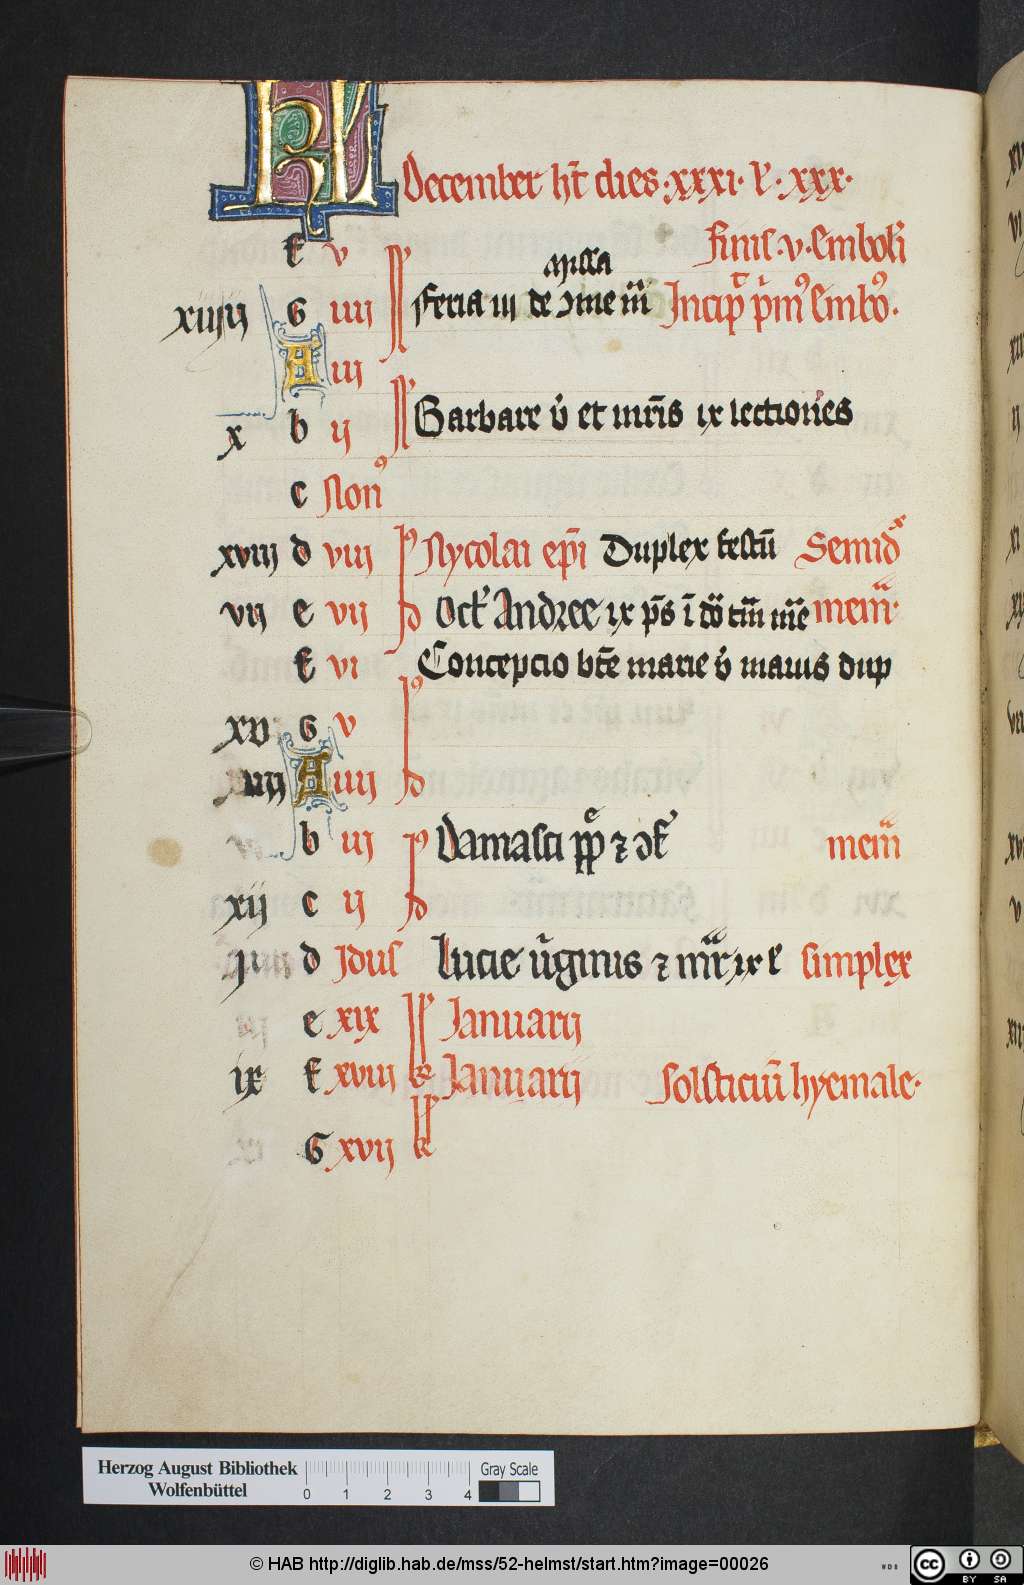 KL December ht dies · xxxi · L · xxx ·
f v finis · v · Emboli
missa
xiiiij G iiii Feria iii de mm Incip pm9 Embo9.
A iii
x b ij Barbare v et mris ix lectiones
c Non9
xviij d viii Nycolai epi Duplex festu Semid
vij e vij Oct Andree ix ps i tm memr.
f vi Concepcio bte marie v maius dup
xv G v
iiij A iiij
b iij Damasci pp memr
xij c ij
d Idus Lucie uginis ix l simplex
e xix Januarij
ix f xviij kl Januarij Solsticiu hyemale.
G xvij kl
Herzog August Bibliothek
Wolfenbüttel
0 1 2 3 4
Gray Scale
© HAB http://diglib.hab.de/mss/52-helmst/start.htm?image=00026
WDB
cc BY SA